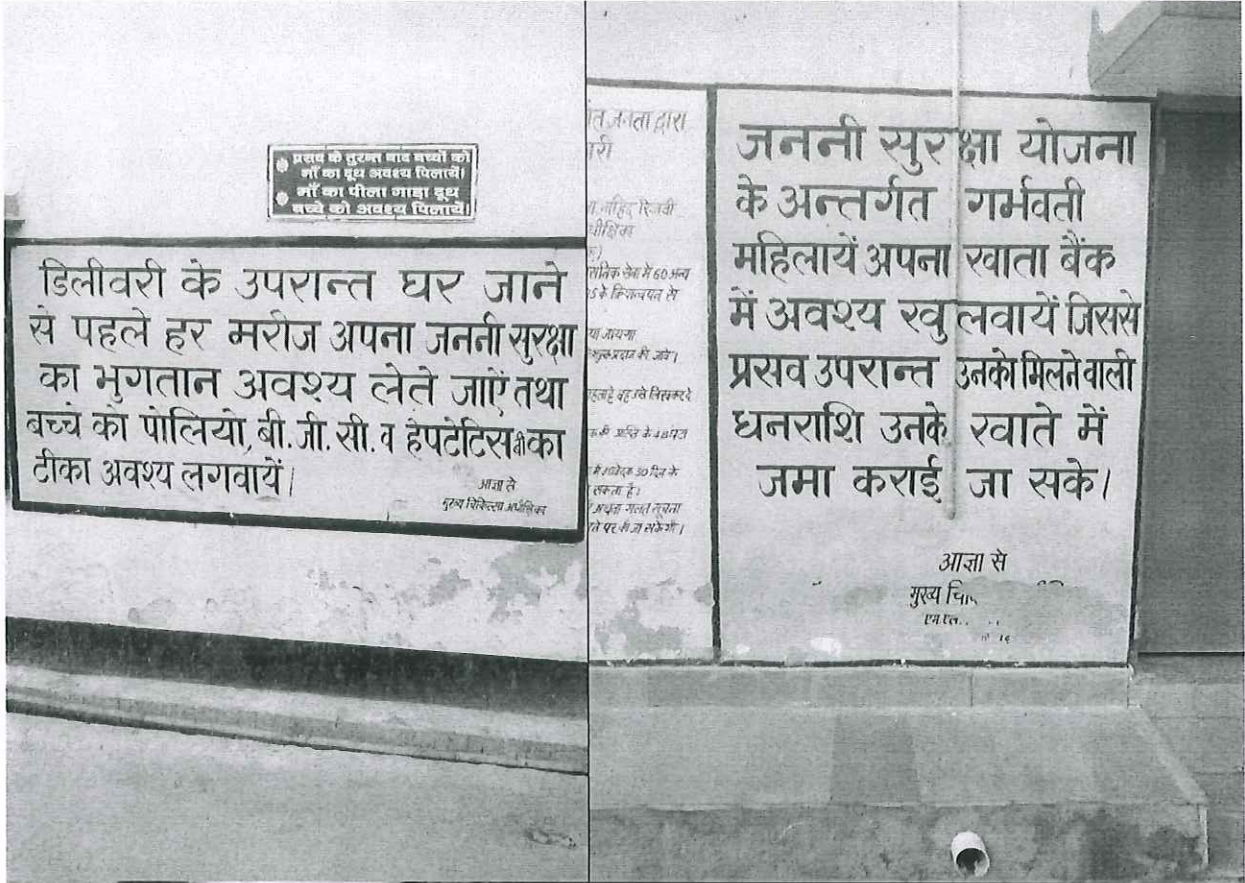 प्रसव के तुरन्त बाद बच्चों को
माँ का दूध अवश्य पिलायें।
माँ का पीला गाढ़ा दूध
बच्चे को अवश्य पिलायें।
डिलीवरी के उपरान्त घर जाने
से पहले हर मरीज अपना जननी सुरक्षा
का भुगतान अवश्य लेते जाऐं तथा
बच्चे को पोलियो, बी.जी.सी. व हेपटेटिस बी का
टीका अवश्य लगवायें।
आज्ञा से
मुख्य चिकित्सा अधीक्षिका
जनता द्वारा
रिजवी
में 60 अन्य
के क्रियान्वयन से
जायगा
की जावे।
के 48 घंटा
30 दिन के
सकता है।
गलत सूचना
जननी सुरक्षा योजना
के अन्तर्गत गर्भवती
महिलायें अपना खाता बैंक
में अवश्य खुलवायें जिससे
प्रसव उपरान्त उनको मिलने वाली
धनराशि उनके खाते में
जमा कराई जा सके।
आज्ञा से
मुख्य